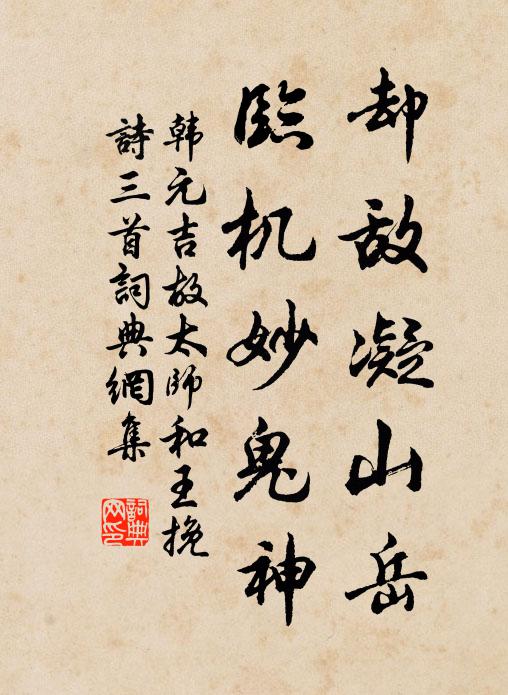 却敌凝山岳
臨机妙鬼神
韩元吉故太師和王挽
詩三首詞典網集
詞典网印